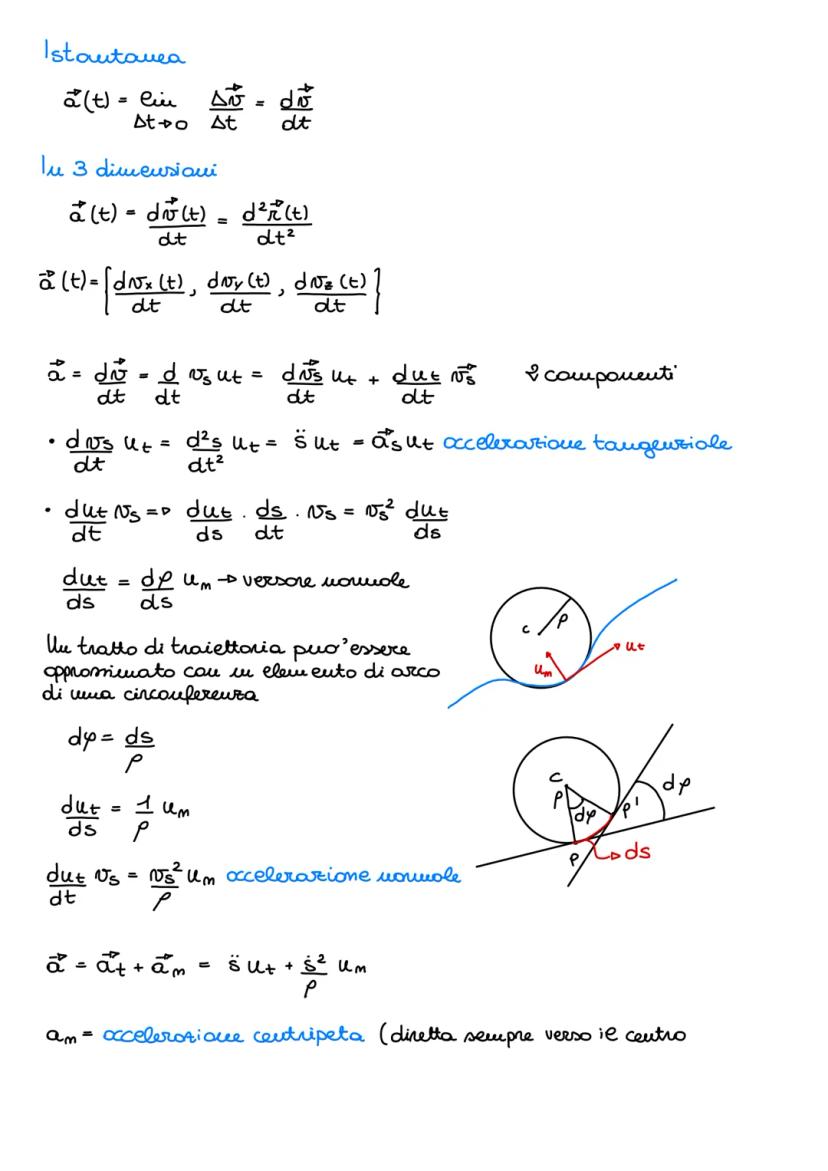 Istantanea
a⃗(t) = lim Δt→0 Δv⃗/Δt = dv⃗/dt
In 3 dimensioni
a⃗(t) = dv⃗(t)/dt = d²r⃗(t)/dt²
a⃗(t) = [dvx(t)/dt, dvy(t)/dt, dvz(t)/dt]
a⃗ = dv⃗/dt = d/dt vs ut = dv⃗s/dt ut + dut/dt v⃗s 2 componenti
• dvs/dt ut = d²s/dt² ut = s̈ ut = a⃗s ut accelerazione tangenziale
• dut/dt vs => dut/ds · ds/dt · vs = vs² dut/ds
dut/ds = dφ/ds un → versore normale
Un tratto di traiettoria puo' essere
approssimato con un elemento di arco
di una circonferenza
c ρ un ut
dφ = ds/ρ
dut/ds = 1/ρ un
dut/dt vs = vs²/ρ un accelerazione normale
c ρ dφ P' dφ
P ds
a⃗ = a⃗t + a⃗n = s̈ ut + ṡ²/ρ un
an = accelerazione centripeta (diretta sempre verso il centro